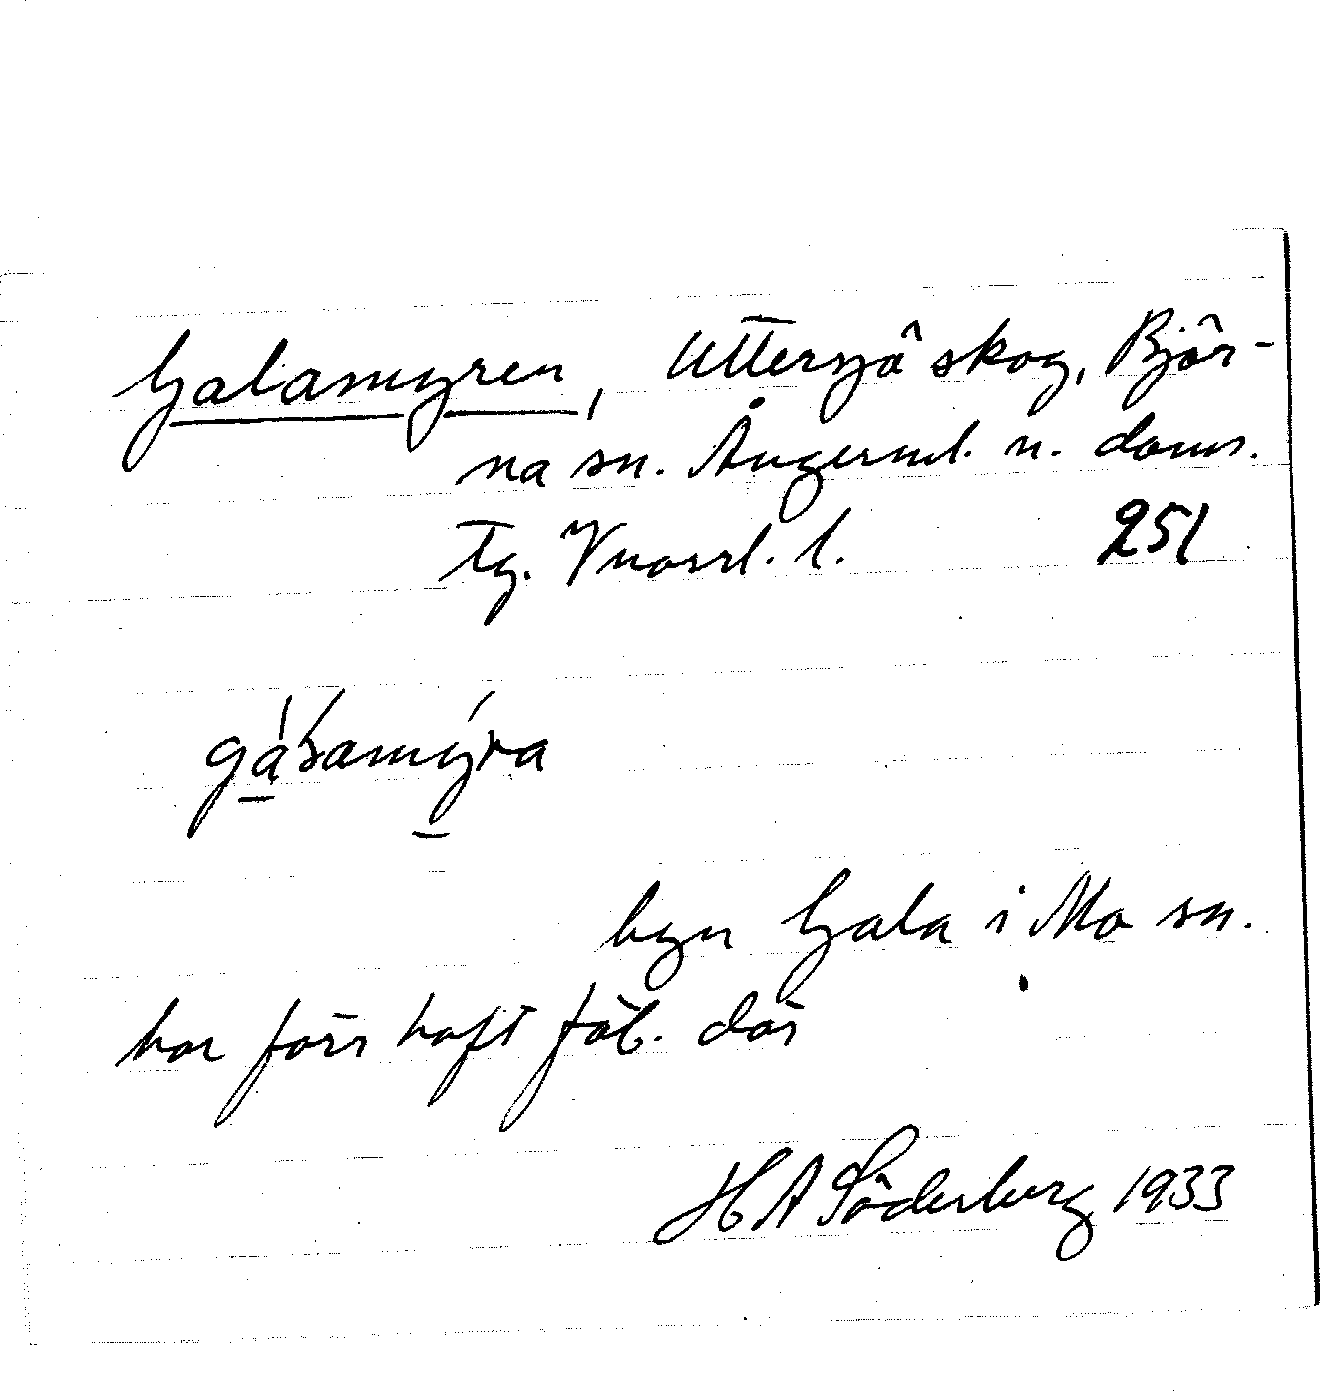 Galamyren, Uttersjö skog, Björ-
na sn. Ångerml. n. doms.
Tg. Vuorrl. l. 251
gálamýra
byn Gala i Mo sn.
har förr haft fäb. där
H A Söderberg 1933